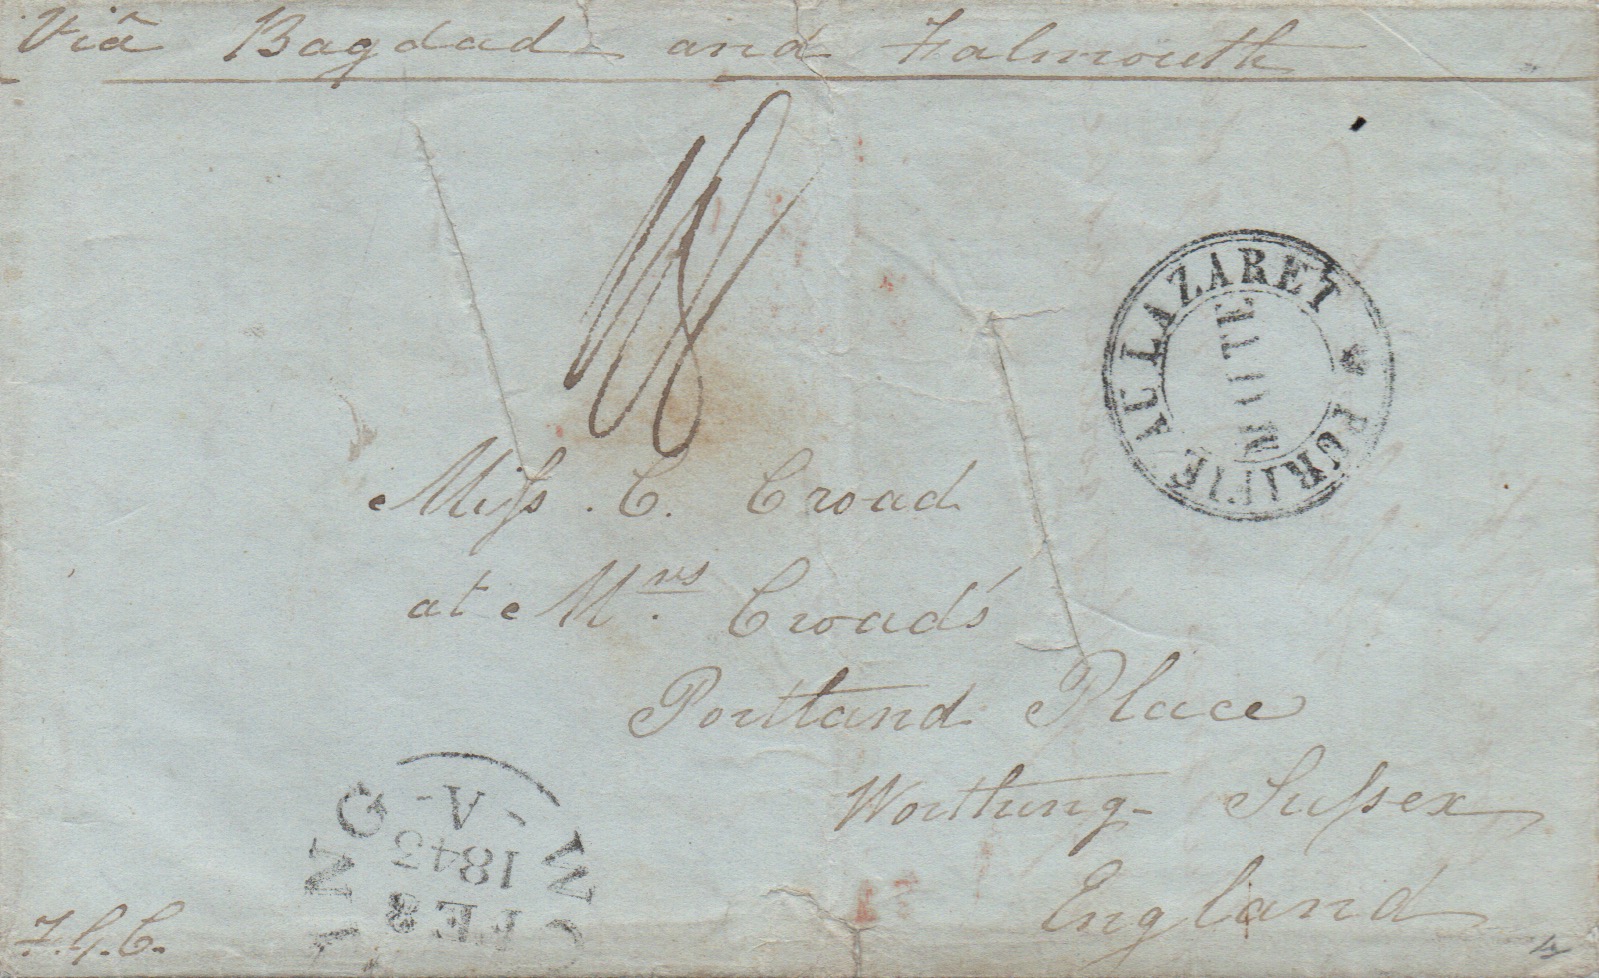 Viâ Bagdad and Falmouth
AU LAZARET * PURIFIÉ
MALTE
Miſs. C. Croad
at Mrs. Croad's
Portland Place
Worthing- Suſsex
England
-A-
1843
FE 8
WO ING
F.G.C.